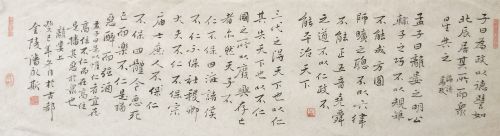 子曰為政以德譬如
北辰居其所而衆
星共之
孟子曰離婁之明公
輸子之巧不以規矩
不能成方圓
師曠之聰不以六律
不能正五音堯舜
之道不以仁政不
能平治天下
三代之得天下也以仁
其失天下也以不仁
國之所以廢興存亡
者亦然天子不仁
不保四海諸侯
不仁不保社稷卿
大夫不仁不保宗
廟士庶人不保仁
不保四體今惡死
亡而樂不仁是猶
惡醉而强酒
離婁上
金陵潘